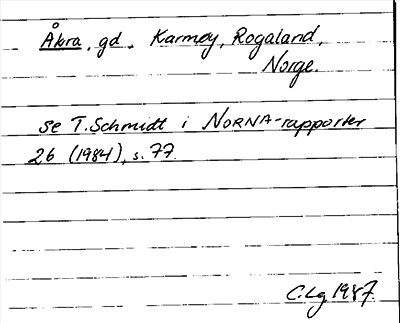 Åkra, gd. Karmøy, Rogaland,
Norge.
se T. Schmidt i NORNA-rapporter
26 (1984), s. 77.
C.Lg 1987.